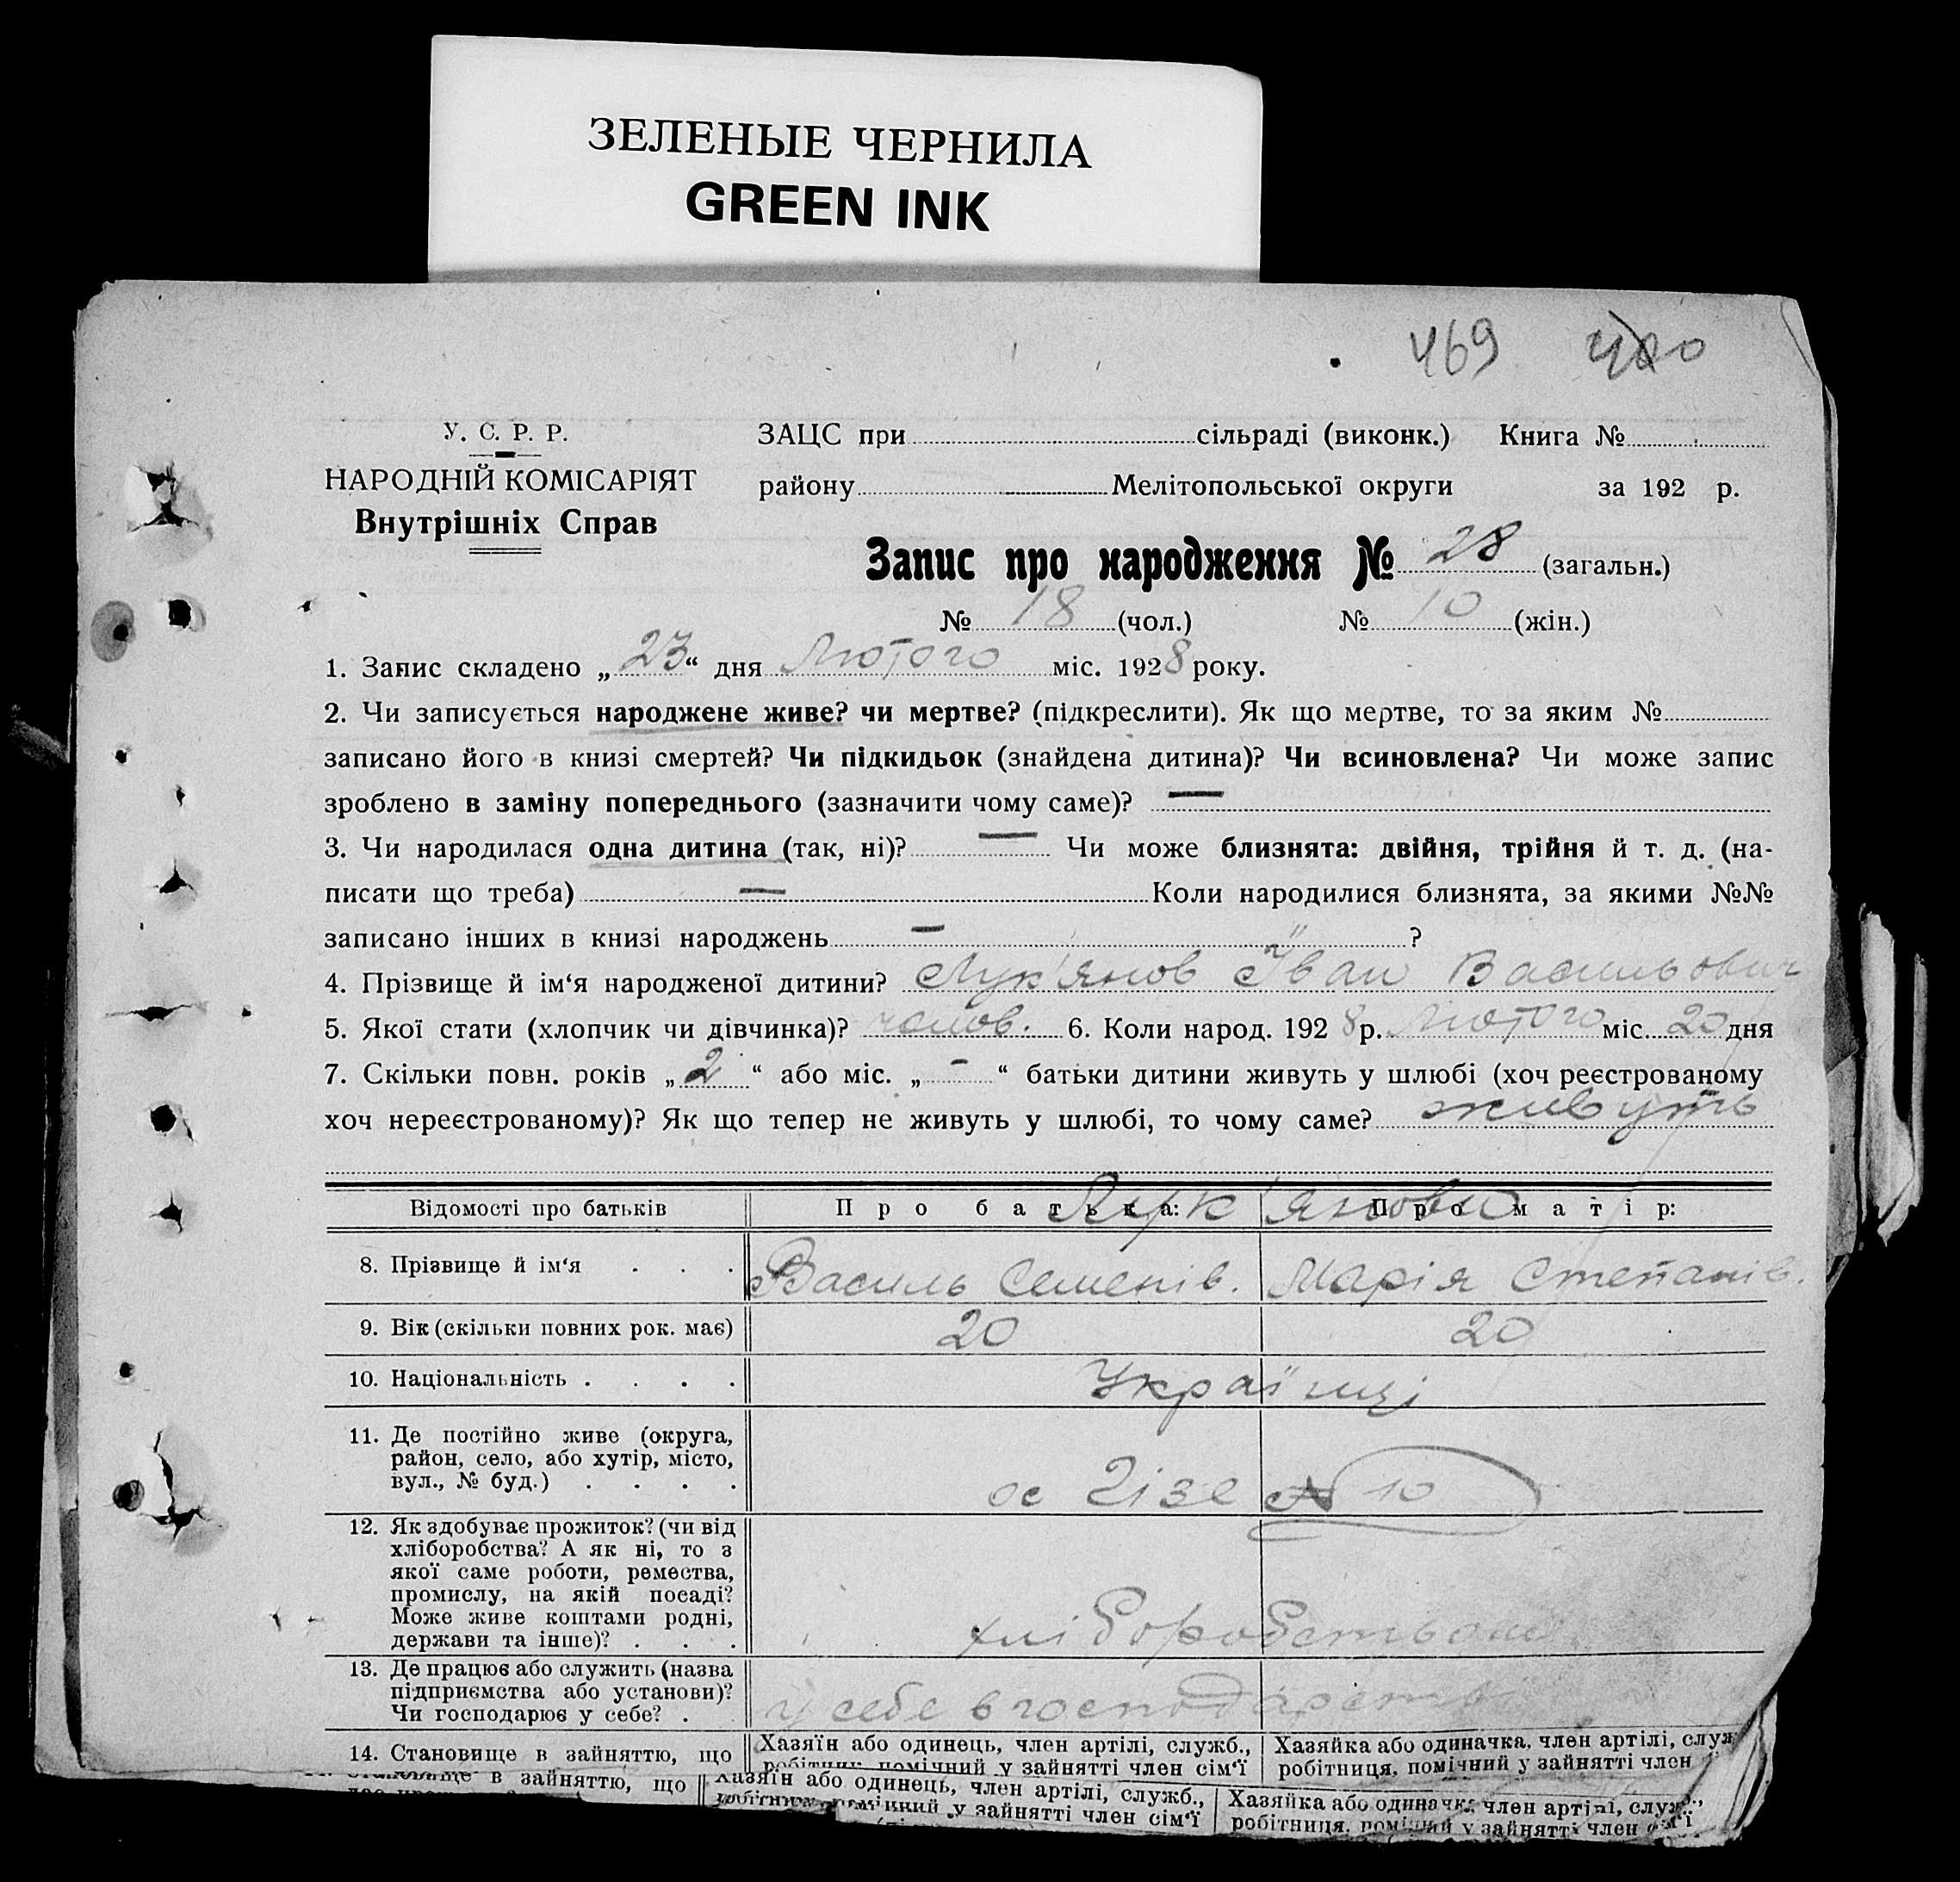 ЗЕЛЕНЫЕ ЧЕРНИЛА
GREEN INK
469 400
У. С. Р. Р.
НАРОДНІЙ КОМІСАРІЯТ
Внутрішніх Справ
ЗАЦС при сільраді (виконк.) Книга №
району Мелітопольської округи за 192 р.
Запис про народження № 28 (загальн.)
№ 18 (чол.) № 10 (жін.)
1. Запис складено „23“ дня Лютого міс. 1928 року.
2. Чи записується народжене живе? чи мертве? (підкреслити). Як що мертве, то за яким №
записано його в книзі смертей? Чи підкидьок (знайдена дитина)? Чи всиновлена? Чи може запис
зроблено в заміну попереднього (зазначити чому саме)? —
3. Чи народилася одна дитина (так, ні)? — Чи може близнята: двійня, трійня й т. д. (на-
писати що треба) — Коли народилися близнята, за якими №№
записано інших в книзі народжень — ?
4. Прізвище й ім‘я народженої дитини? Лук'янов Іван Васильович
5. Якої стати (хлопчик чи дівчинка)? чолов. 6. Коли народ. 1928 р. Лютого міс. 20 дня
7. Скільки повн. років „2“ або міс. „-“ батьки дитини живуть у шлюбі (хоч реєстрованому
хоч нереєстрованому)? Як що тепер не живуть у шлюбі, то чому саме? живуть
Відомості про батьків Про батька: Про матір:
Лук'янови
8. Прізвище й ім‘я . . . Василь Семенів. Марія Степанів.
9. Вік (скільки повних рок. має) 20 20
10. Національність . . . . Українці
11. Де постійно живе (округа,
район, село, або хутір, місто,
вул., № буд.) . . . . № 10
12. Як здобуває прожиток? (чи від
хліборобства? А як ні, то з
якої саме роботи, ремества,
промислу, на якій посаді?
Може живе коштами родні,
держави та інше)? . . . хліборобством
13. Де працює або служить (назва
підприємства або установи)?
Чи господарює у себе? . у себе в господарстві
14. Становище в зайняттю, що Хазяїн або одинець, член артілі, служб., Хазяйка або одиначка, член артілі, служ
робітник, помічний у зайнятті член сім‘ї робітниця, помічний у зайнятті член
Становище в зайняттю, що Хазяїн або одинець, член артілі, служб., Хазяйка або одиначка член артілі, служб.,
робітник, помічний у зайнятті член сім‘ї робітниця, помічний у зайнятті член сім‘ї